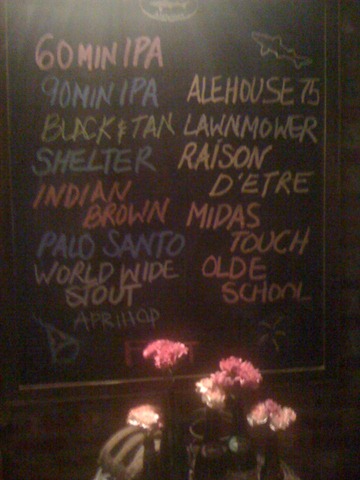 60 MIN IPA
90 MIN IPA
BLACK & TAN
SHELTER
INDIAN
BROWN
PALO SANTO
WORLD WIDE
STOUT
APRIHOP
ALEHOUSE 75
LAWNMOWER
RAISON
D'ETRE
MIDAS
TOUCH
OLDE
SCHOOL